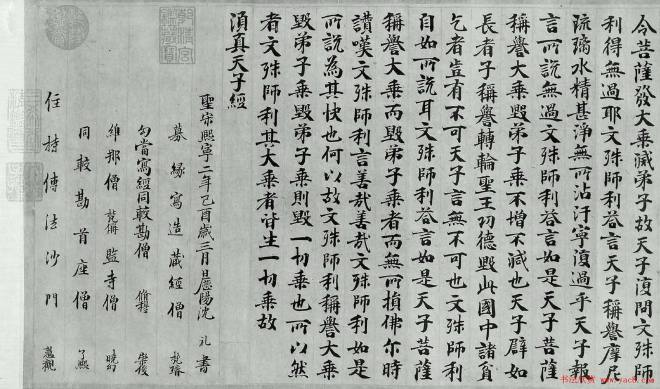 令菩薩發大乘滅弟子故天子湏問文殊師
利得無過耶文殊師利荅言天子稱譽摩尼
琉璃水精甚淨無所沾汙寧湏過乎天子報
言所說無過文殊師利荅言如是天子菩薩
稱譽大乘毀弟子乘不增不減也天子辟如
長者子稱譽轉輪聖王功德毀此國中諸貧
乞者豈有不可天子言無不可也文殊師利
自如所說耳文殊師利荅言如是天子菩薩
稱譽大乘而毀弟子乘者而無所損佛尒時
讚嘆文殊師利言善哉善哉文殊師利如是
所說為其快也何以故文殊師利稱譽大乘
毀弟子乘毀弟子乘則毀一切乘也所以然
者文殊師利其大乘者皆生一切乘故
湏真天子經
聖宋熈寧二年己酉歲三月日歷陽沈 礼 書
募緣寫造藏經僧
勾當寫經同較勘僧
維那僧 監寺僧
同較勘首座僧 了熈
住持傳法沙門
书法欣赏 www.yac8.com